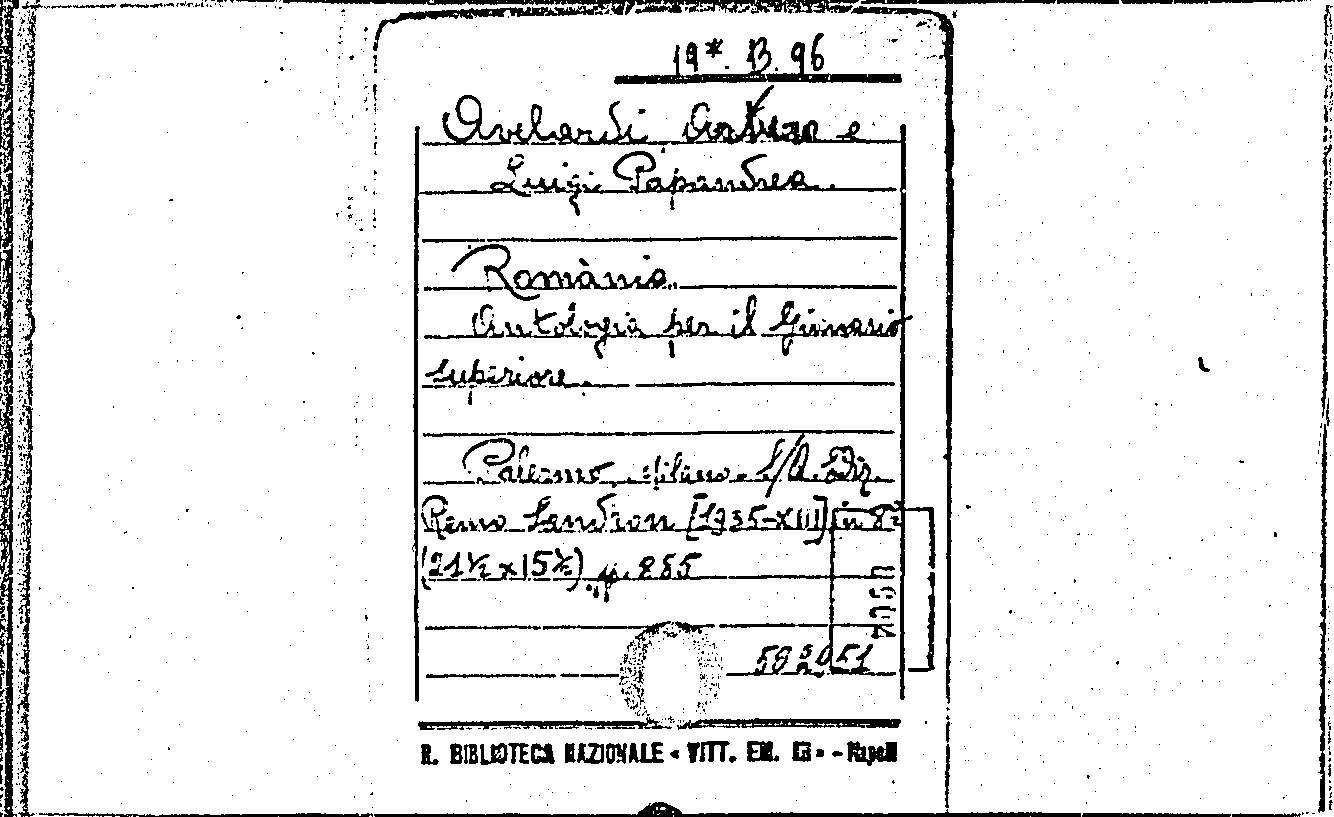 19*. B. 96
Avelardi Arturo e
Luigi Papandrea.
Romània.
Antologia per il Ginnasio
superiore.
Palermo, Milano. S/A. Ediz.
Remo Sandron [1935-XIII] in 8º
(21½ x 15½) p. 885
R. BIBLIOTECA NAZIONALE « VITT. EM. III » - Napoli